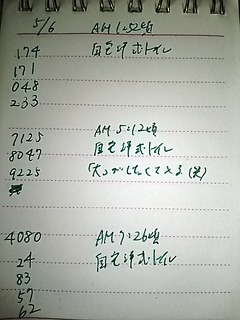 5/6 AM1:52頃
174 自宅洋式トイレ
171
048
233
7125 AM5:12頃
8047 自宅洋式トイレ
9225
4080 AM7:26頃
24 自宅洋式トイレ
83
57
62